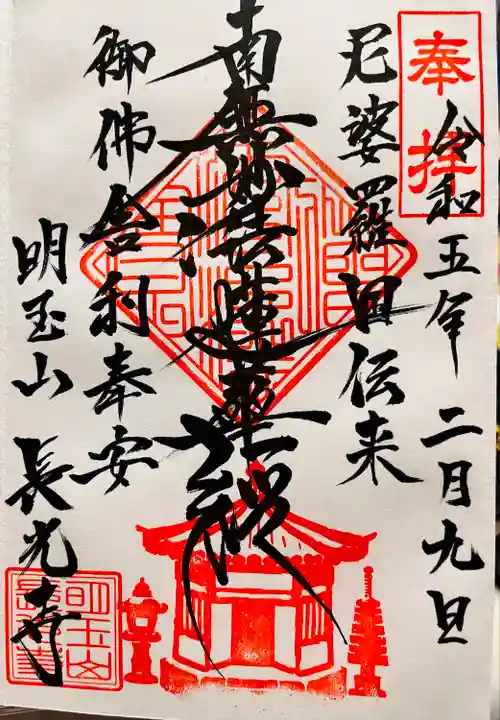 奉拝
令和五年二月九日
尼婆羅国伝来
南無妙法蓮華経
御佛舎利奉安
明玉山 長光寺